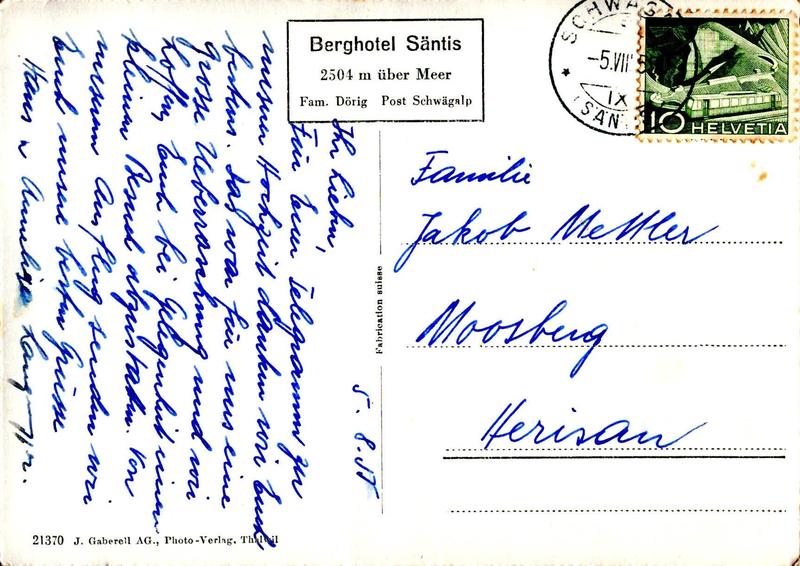 Berghotel Säntis
2504 m über Meer
Fam. Dörig Post Schwägalp
SCHWÄG
-5.VIII.5
IX
SÄN
10 HELVETIA
Ihr Lieben,
Für Euer Telegramm zur
unserer Hochzeit danken wir Euch
bestens. Das war für uns eine
grosse Ueberraschung und wir
hoffen, Euch bei Gelegenheit einen
kleinen Besuch abzustatten. Von
unserem Ausflug senden wir
Euch unsere besten Grüsse
Hans u. Annelies
5. 8. 55
Familie
Jakob Mettler
Moosberg
Herisau
Fabrication suisse
21370 J. Gaberell AG., Photo-Verlag, Thalwil